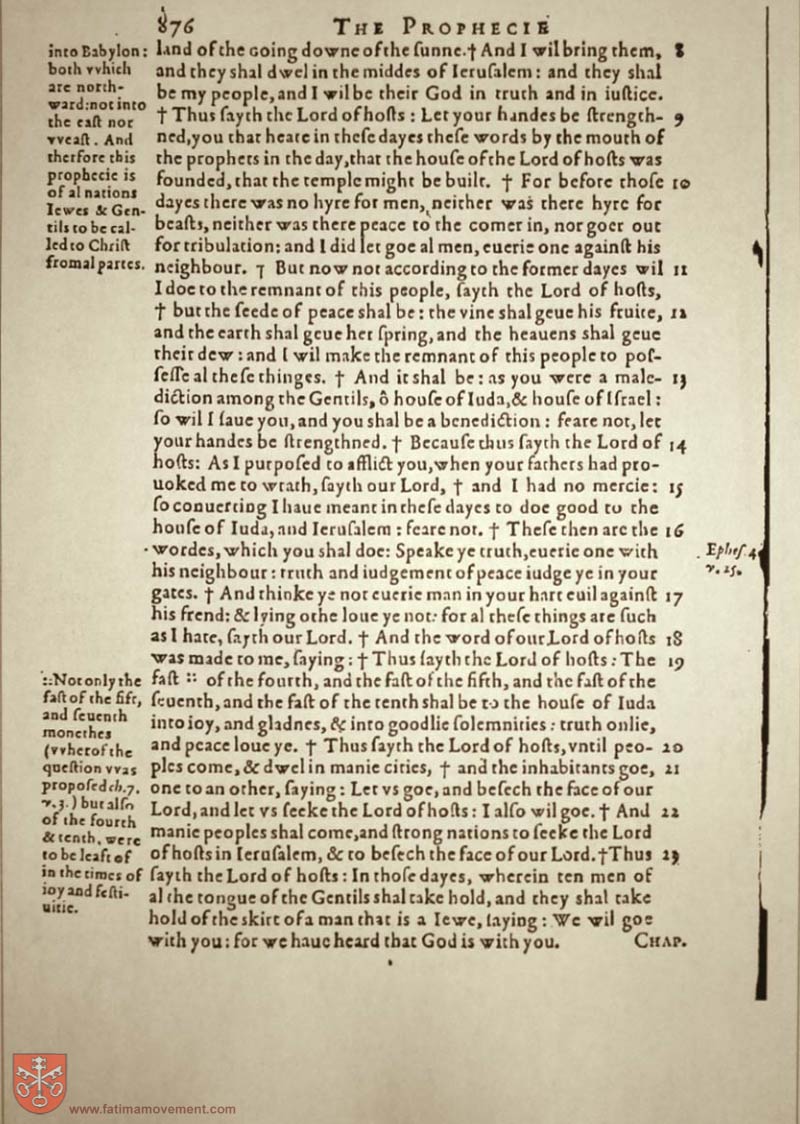 876 THE PROPHECIE
into Babylon:
both vvhich
are north-
ward: not into
the east nor
vveast. And
therfore this
prophecie is
of al nations
Iewes & Gen-
tils to be cal-
led to Christ
from al partes.
land of the going downe of the sunne. † And I wil bring them, 8
and they shal dwel in the middes of Ierusalem: and they shal
be my people, and I wil be their God in truth and in iustice.
† Thus sayth the Lord of hosts: Let your handes be strength- 9
ned, you that heare in these dayes these words by the mouth of
the prophets in the day, that the house of the Lord of hosts was
founded, that the temple might be built. † For before those 10
dayes there was no hyre for men, neither was there hyre for
beasts, neither was there peace to the comer in, nor goer out
for tribulation: and I did let goe al men, euerie one against his
neighbour. † But now not according to the former dayes wil 11
I doe to the remnant of this people, sayth the Lord of hosts,
† but the seede of peace shal be: the vine shal geue his fruite, 12
and the earth shal geue her spring, and the heauens shal geue
their dew: and I wil make the remnant of this people to pos-
sesse al these thinges. † And it shal be: as you were a male- 13
diction among the Gentils, ô house of Iuda, & house of Israel:
so wil I saue you, and you shal be a benediction: feare not, let
your handes be strengthned. † Because thus sayth the Lord of 14
hosts: As I purposed to afflict you, when your fathers had pro-
uoked me to wrath, sayth our Lord, † and I had no mercie: 15
so conuerting I haue meant in these dayes to doe good to the
house of Iuda, and Ierusalem: feare not. † These then are the 16
wordes, which you shal doe: Speake ye truth, euerie one with
his neighbour: truth and iudgement of peace iudge ye in your
gates. † And thinke ye not euerie man in your hart euil against 17
his frend: & lying othe loue ye not: for al these things are such
as I hate, sayth our Lord. † And the word of our Lord of hosts 18
was made to me, saying: † Thus sayth the Lord of hosts: The 19
fast :: of the fourth, and the fast of the fifth, and the fast of the
seuenth, and the fast of the tenth shal be to the house of Iuda
into ioy, and gladnes, & into goodlie solemnities: truth onlie,
and peace loue ye. † Thus sayth the Lord of hosts, vntil peo- 20
ples come, & dwel in manie cities, † and the inhabitants goe, 21
one to an other, saying: Let vs goe, and besech the face of our
Lord, and let vs seeke the Lord of hosts: I also wil goe. † And 22
manie peoples shal come, and strong nations to seeke the Lord
of hosts in Ierusalem, & to besech the face of our Lord. † Thus 23
sayth the Lord of hosts: In those dayes, wherein ten men of
al the tongue of the Gentils shal take hold, and they shal take
hold of the skirt of a man that is a Iewe, saying: We wil goe
with you: for we haue heard that God is with you. CHAP.
Ephes. 4
v. 25.
:: Not only the
fast of the fift,
and seuenth
monethes
(vvherof the
question vvas
proposed ch. 7.
v. 3.) but also
of the fourth
& tenth, were
to be least of
in the times of
ioy and festi-
uitie.
www.fatimamovement.com